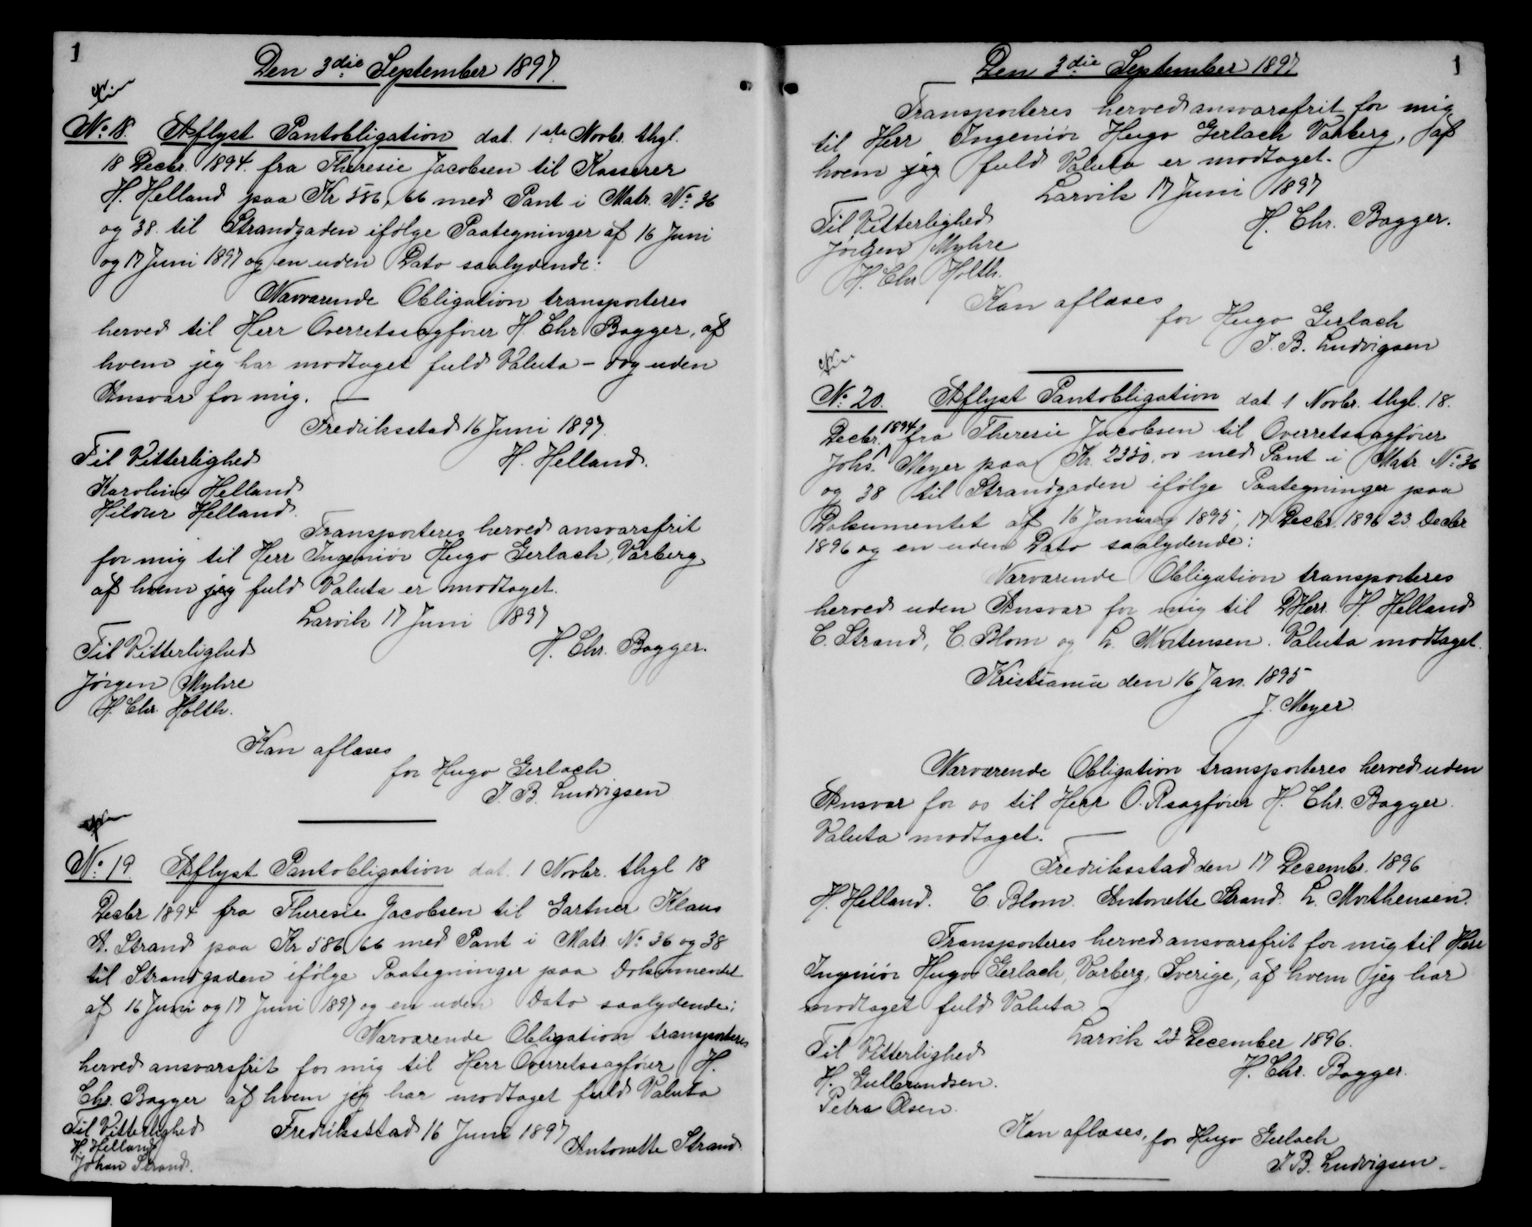 1
Den 3die September 1897.
No 18. Aflyst Pantobligation dat. 1ste Novbr. thgl.
18 Decbr. 1894. fra Theresie Jacobsen til Kasserer
H. Helland paa Kr 586,66 med Pant i Matr. No 36
og 38 til Strandgaden ifølge Paategninger af 16 Juni
og 17 Juni 1897 og en uden Dato saalydende:
Nærværende Obligation transporteres
herved til Herr Overretssagfører H Chr Bagger, af
hvem jeg har modtaget fuld Valuta – dog uden
Ansvar for mig. –
Fredriksstad 16 Juni 1897.
Til Vitterlighed H. Helland.
Karoline Helland
Hildur Helland.
Transporteres herved ansvarsfrit
for mig til Herr Ingeniør Hugo Gerlach, Varberg
af hvem jeg fuld Valuta er modtaget.
Larvik 17 Juni 1897
Til Vitterlighed H. Chr. Bagger.
Jørgen Myhre
H. Chr. Holth.
Kan aflæses
for Hugo Gerlach
I. B. Ludvigsen
No 19 Aflyst Pantobligation dat. 1 Novbr. thgl 18
Decbr 1894 fra Theresie Jacobsen til Gartner Klaus
A. Strand paa Kr 586,66 med Pant i Matr No 36 og 38
til Strandgaden ifølge Paategninger paa Dokumentet
af 16 Juni og 17 Juni 1897 og en uden Dato saalydende:
Nærværende Obligation transporteres
herved ansvarsfrit for mig til Herr Overretssagfører H.
Chr. Bagger af hvem jeg har modtaget fuld Valuta
Til Vitterlighed Fredriksstad 16 Juni 1897
H. Helland Antonette Strand
Johan Strand.
1
Den 3die September 1897
Transporteres herved ansvarsfrit for mig
til Herr Ingeniør Hugo Gerlach Varberg, af
hvem jeg fuld Valuta er modtaget.
Larvik 17 Juni 1897
Til Vitterlighed H. Chr. Bagger.
Jørgen Myhre
H. Chr Holth.
Kan aflæses
for Hugo Gerlach
I. B. Ludvigsen
No 20. Aflyst Pantobligation dat. 1 Novbr. thgl. 18.
Decbr. 1894 fra Theresie Jacobsen til Overretssagfører
Johs. Meyer paa Kr. 2350.00 med Pant i Matr No 36
og 38 til Strandgaden ifølge Paategninger paa
Dokumentet af 16 Januar 1895, 17 Decbr 1896 23. Decbr
1896 og en uden Dato saalydende:
Nærværende Obligation transporteres
herved uden Ansvar for mig til DHerr H. Helland
C. Strand, C. Blom og L. Mortensen. Valuta modtaget.
Kristiania den 16 Jan. 1895
J. Meyer
Nærværende Obligation transporteres herved uden
Ansvar for os til Herr O. Rsagfører H. Chr. Bagger.
Valuta modtaget. –
Fredriksstad den 17 Decembr. 1896
H. Helland. C. Blom. Antonette Strand. L. Morthensen.
Transporteres herved ansvarsfrit for mig til Herr
Ingeniør Hugo Gerlach, Varberg, Sverige, af hvem jeg har
modtaget fuld Valuta
Larvik 23 December 1896.
Til Vitterlighed H. Chr. Bagger.
H. Gulbrandsen.
Petra Olsen.
Kan aflæses, for Hugo Gerlach
I. B. Ludvigsen.